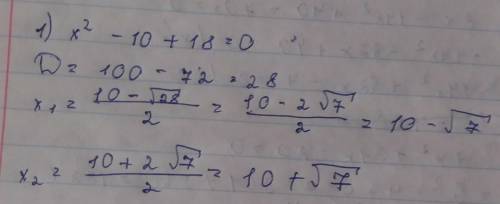 1) x² - 10 + 18 = 0
D = 100 - 72 = 28
x₁ = (10 - √28)/2 = (10 - 2√7)/2 = 10 - √7
x₂ = (10 + 2√7)/2 = 10 + √7